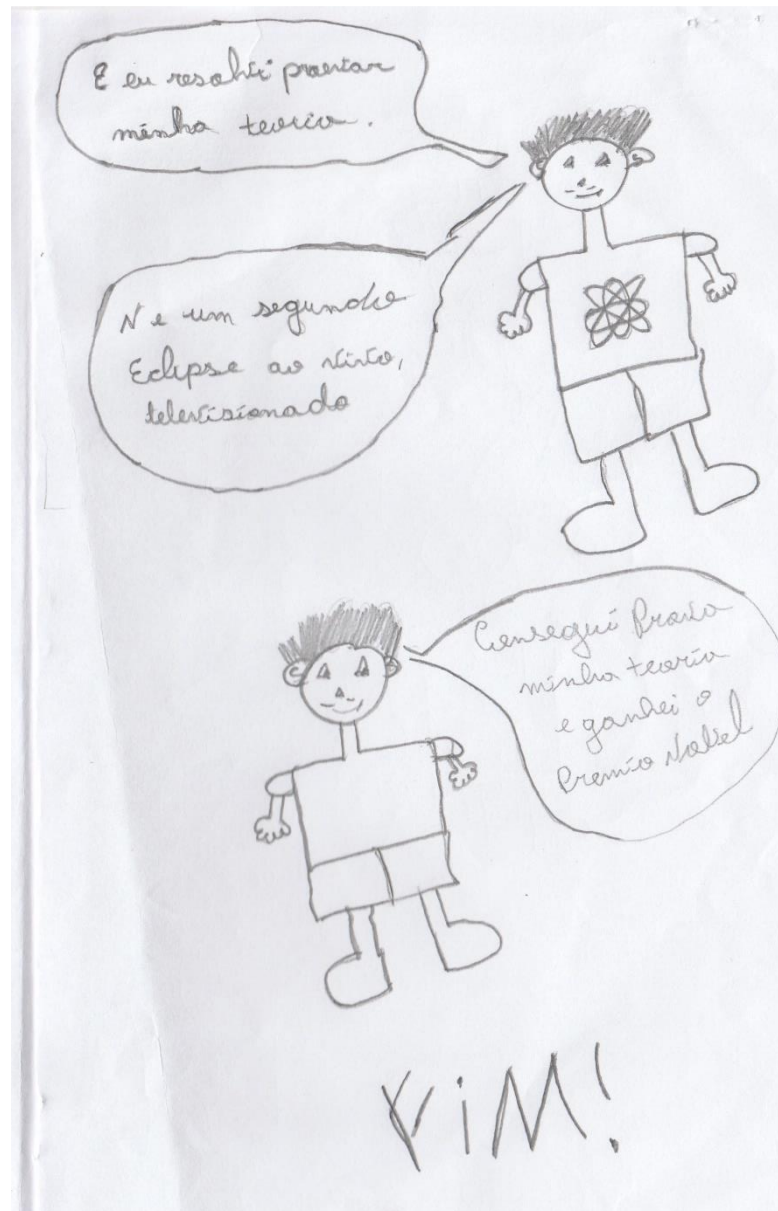 E eu resolvi provar
minha teoria.
N e um segundo
Eclipse ao vivo,
televisionado
Consegui Prova
minha teoria
e ganhei o
Premio Nobel
FiM!